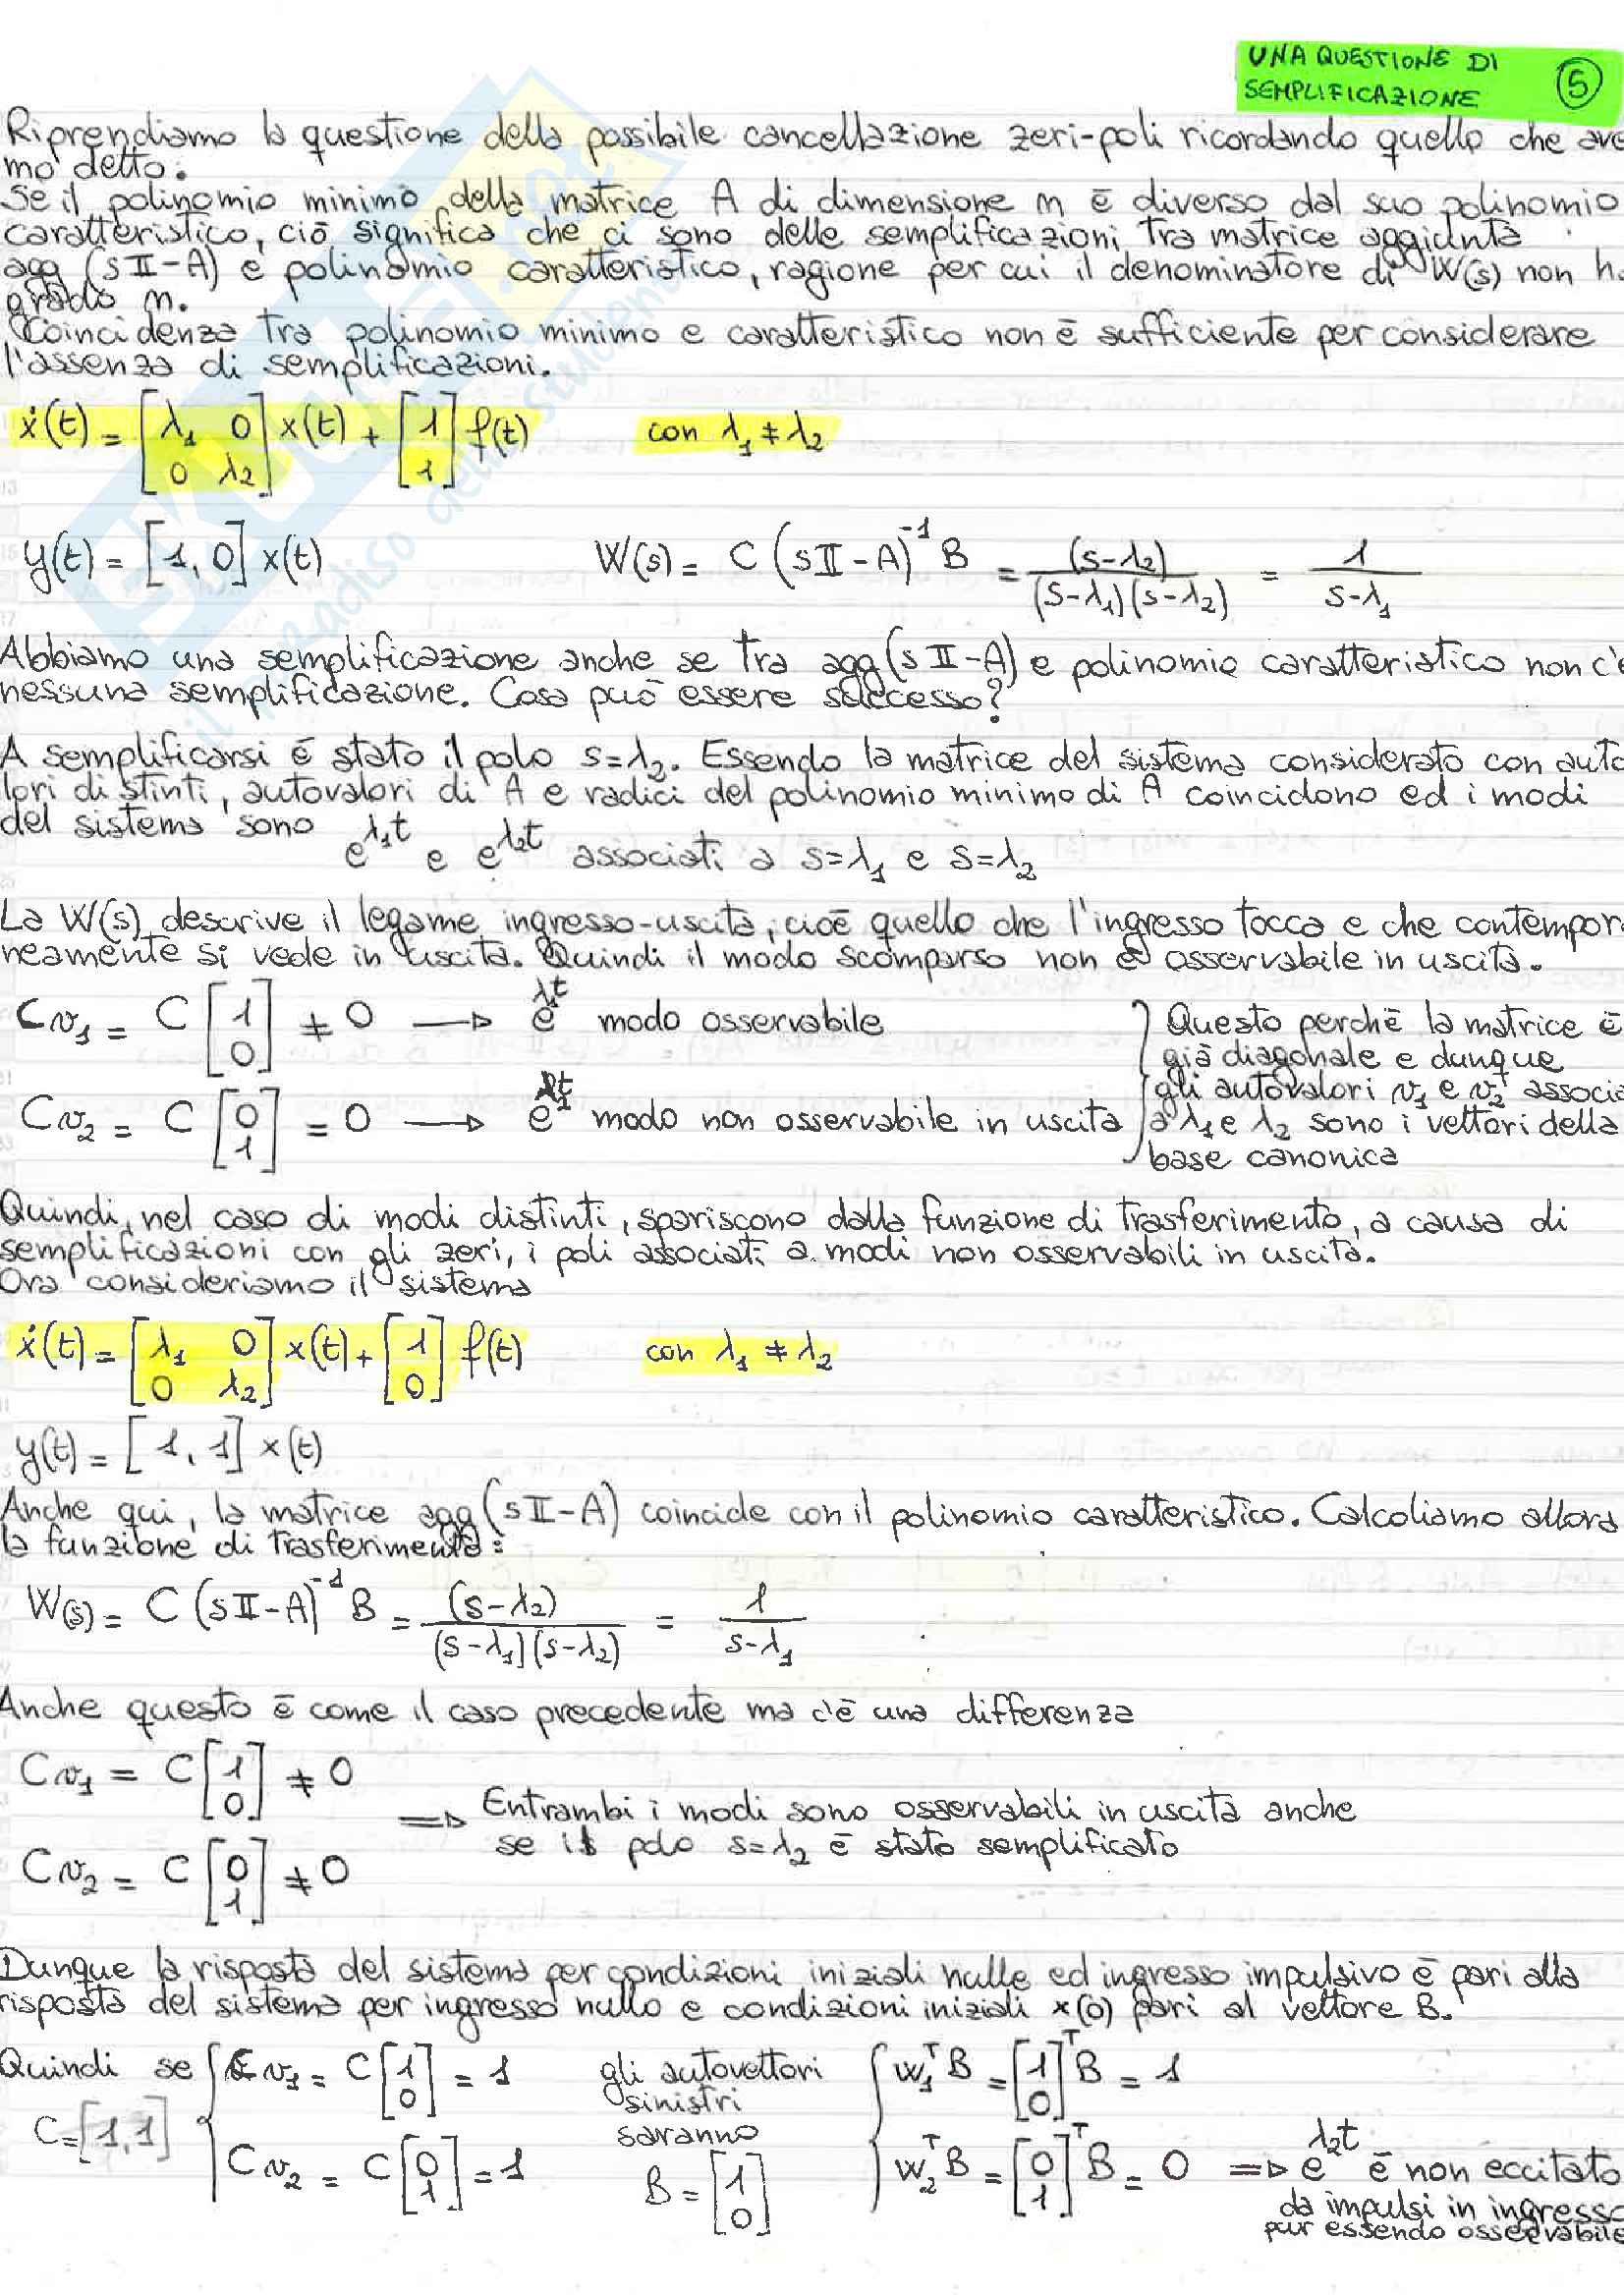 UNA QUESTIONE DI
SEMPLIFICAZIONE
5
Riprendiamo la questione della possibile cancellazione zeri-poli ricordando quello che ave
mo detto.
Se il polinomio minimo della matrice A di dimensione n è diverso dal suo polinomio
caratteristico, ciò significa che ci sono delle semplificazioni tra matrice aggiunta
agg (sII-A) e polinomio caratteristico, ragione per cui il denominatore di W(s) non h
grado n.
Coincidenza tra polinomio minimo e caratteristico non è sufficiente per considerare
l'assenza di semplificazioni.
ẋ(t) = [λ1 0; 0 λ2] x(t) + [1; 1] f(t) con λ1 ≠ λ2
y(t) = [1, 0] x(t) W(s) = C (sII-A)^-1 B = (s-λ2)/((s-λ1)(s-λ2)) = 1/(s-λ1)
Abbiamo una semplificazione anche se tra agg(sII-A) e polinomio caratteristico non c'è
nessuna semplificazione. Cosa può essere successo?
A semplificarsi è stato il polo s=λ2. Essendo la matrice del sistema considerato con auto
lori distinti, autovalori di A e radici del polinomio minimo di A coincidono ed i modi
del sistema sono e^λ1t e e^λ2t associati a s=λ1 e s=λ2
La W(s) descrive il legame ingresso-uscita, cioè quello che l'ingresso tocca e che contempor
neamente si vede in uscita. Quindi il modo scomparso non è osservabile in uscita.
Cv1 = C [1; 0] ≠ 0 → e^λt modo osservabile
Cv2 = C [0; 1] = 0 → modo non osservabile in uscita
Questo perchè la matrice è
già diagonale e dunque
gli autovalori v1 e v2 associa
a λ1 e λ2 sono i vettori della
base canonica
Quindi, nel caso di modi distinti, spariscono dalla funzione di trasferimento, a causa di
semplificazioni con gli zeri, i poli associati a modi non osservabili in uscita.
Ora consideriamo il sistema
ẋ(t) = [λ1 0; 0 λ2] x(t) + [1; 0] f(t) con λ1 ≠ λ2
y(t) = [1, 1] x(t)
Anche qui, la matrice agg(sII-A) coincide con il polinomio caratteristico. Calcoliamo allora
la funzione di trasferimento:
W(s) = C (sII-A)^-1 B = (s-λ2)/((s-λ1)(s-λ2)) = 1/(s-λ1)
Anche questo è come il caso precedente ma c'è una differenza
Cv1 = C [1; 0] ≠ 0
Cv2 = C [0; 1] ≠ 0
⇒ Entrambi i modi sono osservabili in uscita anche
se il polo s=λ2 è stato semplificato
Dunque la risposta del sistema per condizioni iniziali nulle ed ingresso impulsivo è pari alla
risposta del sistema per ingresso nullo e condizioni iniziali x(0) pari al vettore B.
Quindi se C=[1,1] { Cv1 = C [1; 0] = 1
Cv2 = C [0; 1] = 1
gli autovettori
sinistri
saranno
B = [1; 0]
{ w1^T B = [1; 0]^T B = 1
w2^T B = [0; 1]^T B = 0 ⇒ e^λ2t è non eccitato
da impulsi in ingresso
pur essendo osservabile
SKUOLA.net
il paradiso dello studente